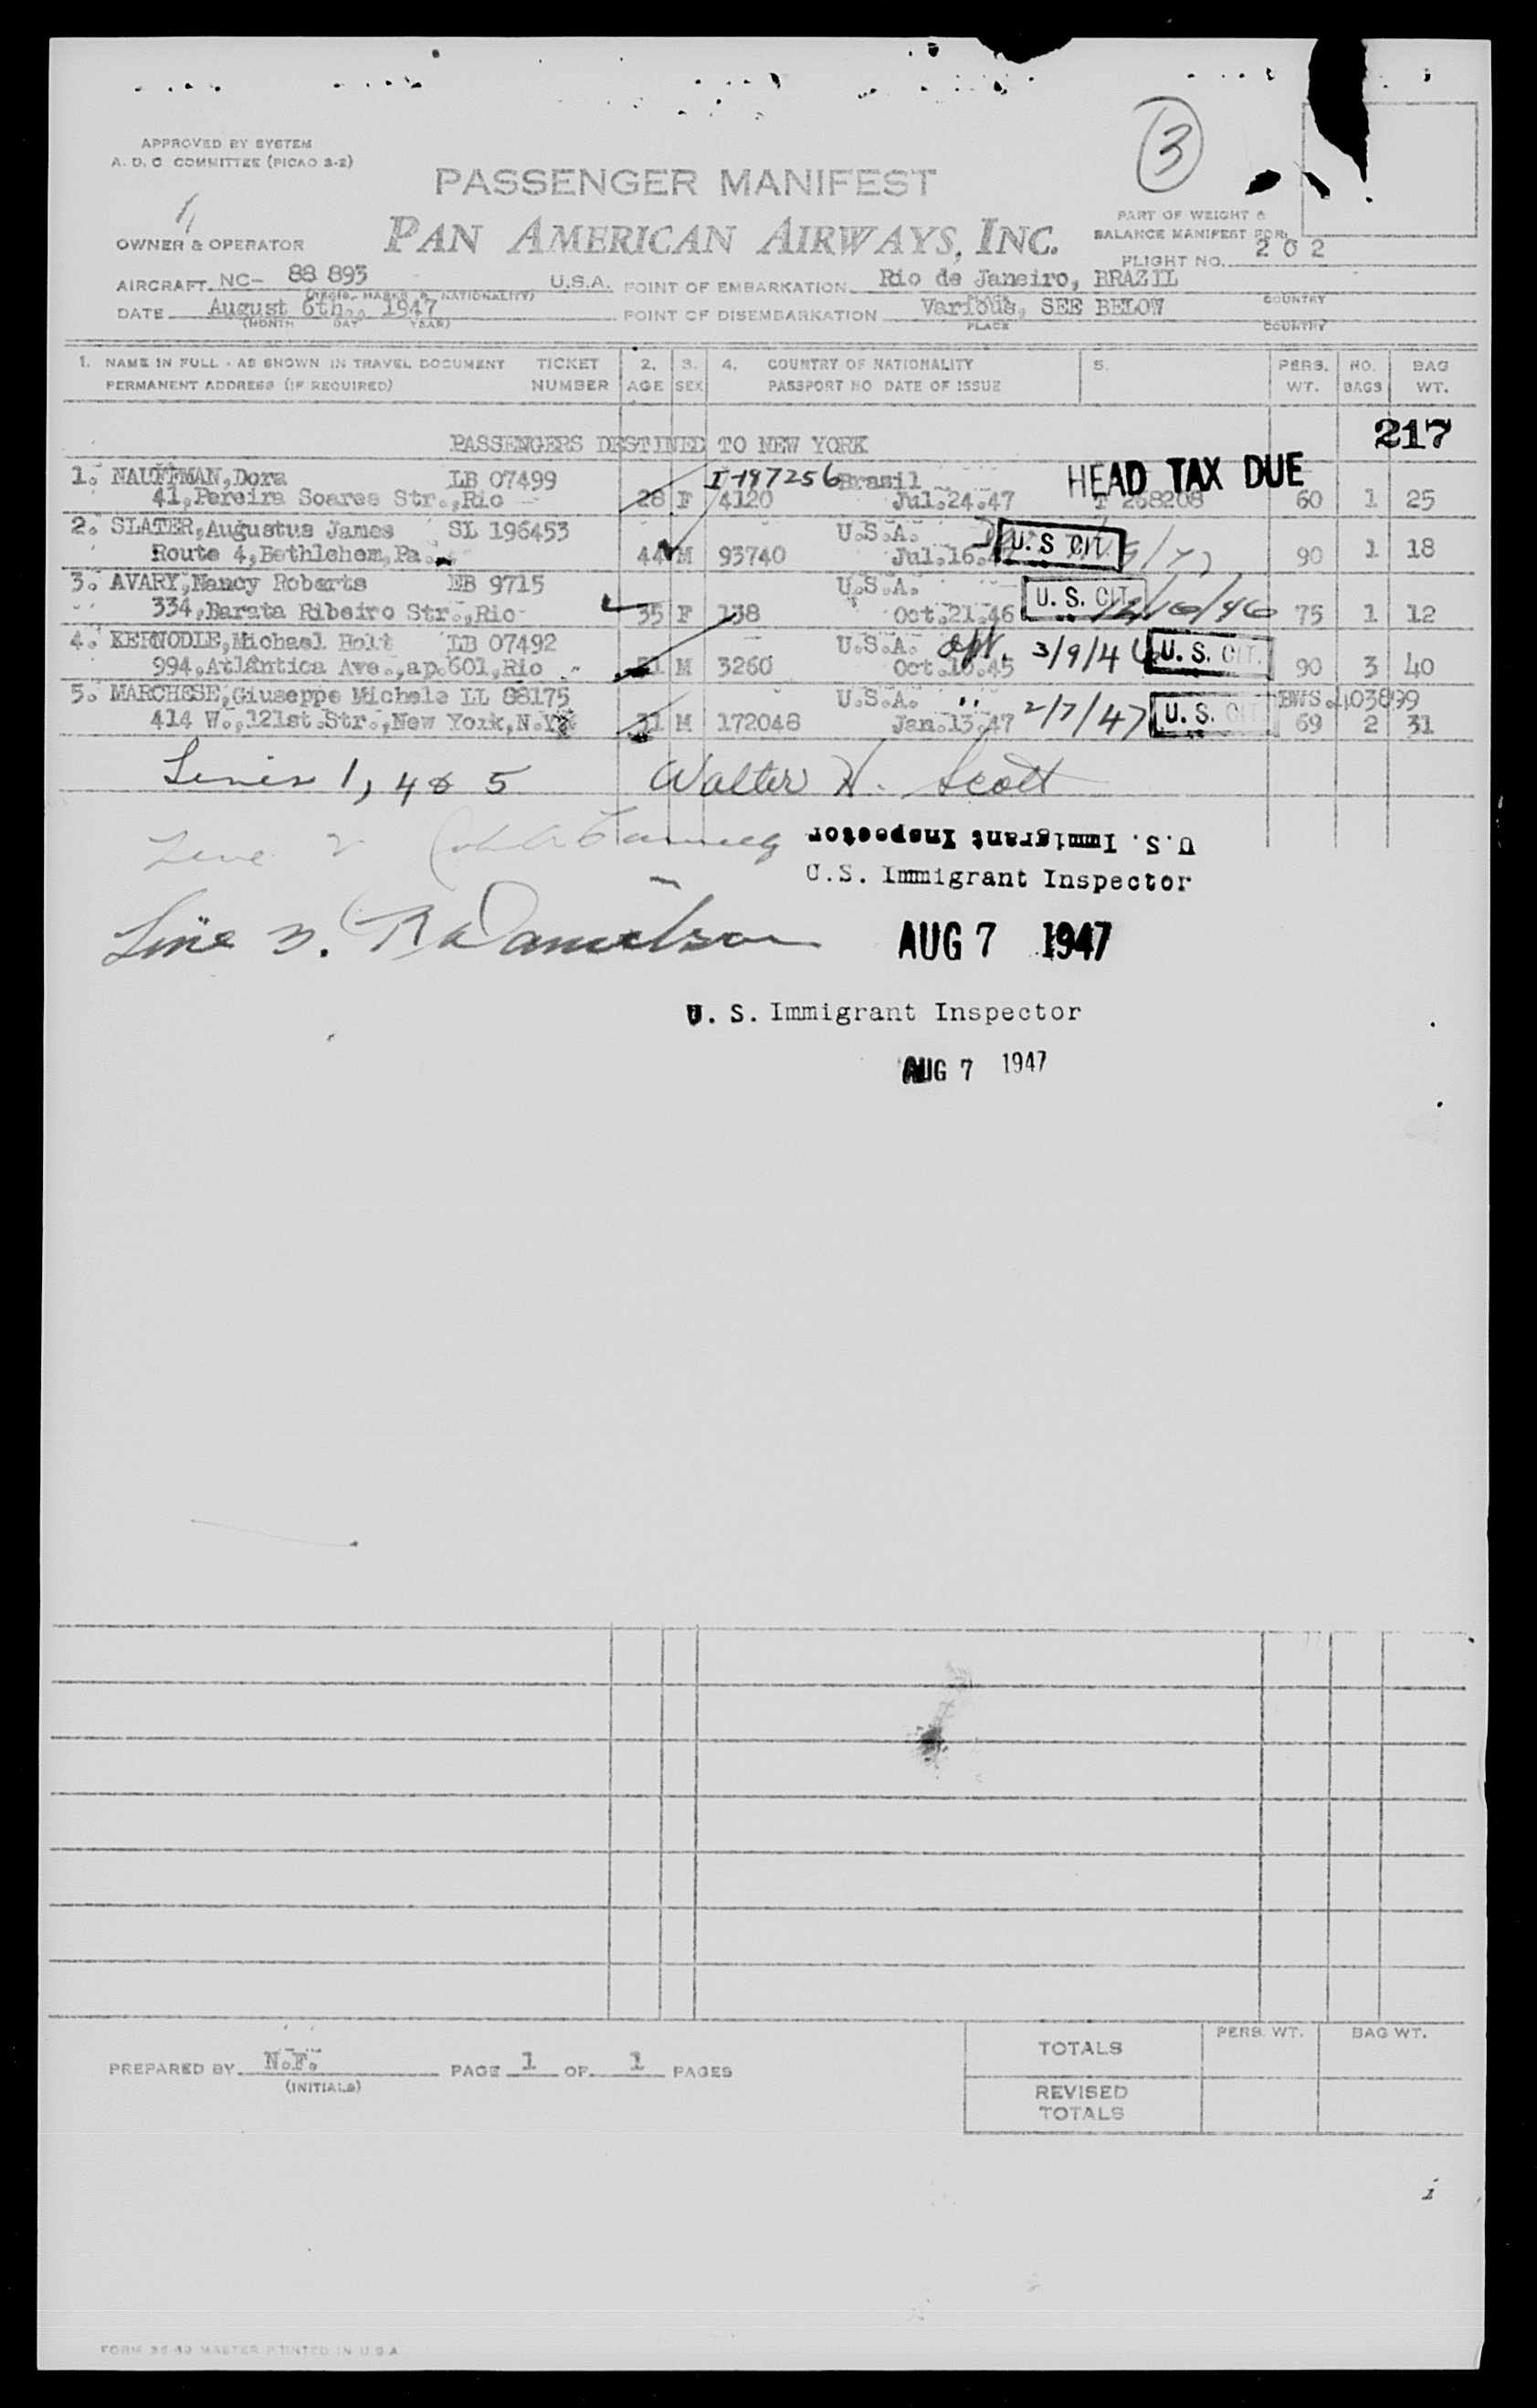 APPROVED BY SYSTEM
A. D. C COMMITTEE (PICAO 2-2)
3
PASSENGER MANIFEST
PAN AMERICAN AIRWAYS, INC.
PART OF WEIGHT &
BALANCE MANIFEST FOR:
OWNER & OPERATOR
FLIGHT NO. 202
AIRCRAFT NC- 88 893 U.S.A. POINT OF EMBARKATION Rio de Janeiro, BRAZIL
COUNTRY
DATE August 6th., 1947 POINT OF DISEMBARKATION Various, SEE BELOW
(MONTH DAY YEAR) PLACE COUNTRY
1. NAME IN FULL - AS SHOWN IN TRAVEL DOCUMENT TICKET 2. 3. 4. COUNTRY OF NATIONALITY 5. PERS. NO. BAG
PERMANENT ADDRESS (IF REQUIRED) NUMBER AGE SEX PASSPORT NO DATE OF ISSUE WT. BAGS WT.
217
PASSENGERS DESTINED TO NEW YORK
1. NAUFFMAN, Dora LB 07499 I-197256 Brasil HEAD TAX DUE
41, Pereira Soares Str., Rio 28 F 4120 Jul.24.47 T 268208 60 1 25
2. SLATER, Augustus James SL 196453 U.S.A. U.S CIT.
Route 4, Bethlehem, Pa. 44 M 93740 Jul.16. 90 1 18
3. AVARY, Nancy Roberts EB 9715 U.S.A. U. S. CIT.
334, Barata Ribeiro Str., Rio 35 F 138 Oct.21.46 12/10/46 75 1 12
4. KERNODLE, Michael Holt LB 07492 U.S.A. 3/9/46 U. S. CIT.
994, Atlântica Ave., ap.601, Rio 31 M 3260 Oct.16.45 90 3 40
5. MARCHESE, Giuseppe Michele LL 88175 U.S.A. U. S. CIT BWS.403899
414 W., 121st.Str., New York, N.Y. 31 M 172048 Jan.13.47 2/7/47 69 2 31
Lines 1, 4 & 5 Walter H. Scott
Line 2
U.S. Immigrant Inspector
U.S. Immigrant Inspector
Line 3. R A Danielson
AUG 7 1947
U. S. Immigrant Inspector
AUG 7 1947
PREPARED BY N.F. PAGE 1 OF 1 PAGES
(INITIALS)
TOTALS PERS. WT. BAG WT.
REVISED
TOTALS
FORM 36-49 MASTER PRINTED IN U.S.A.